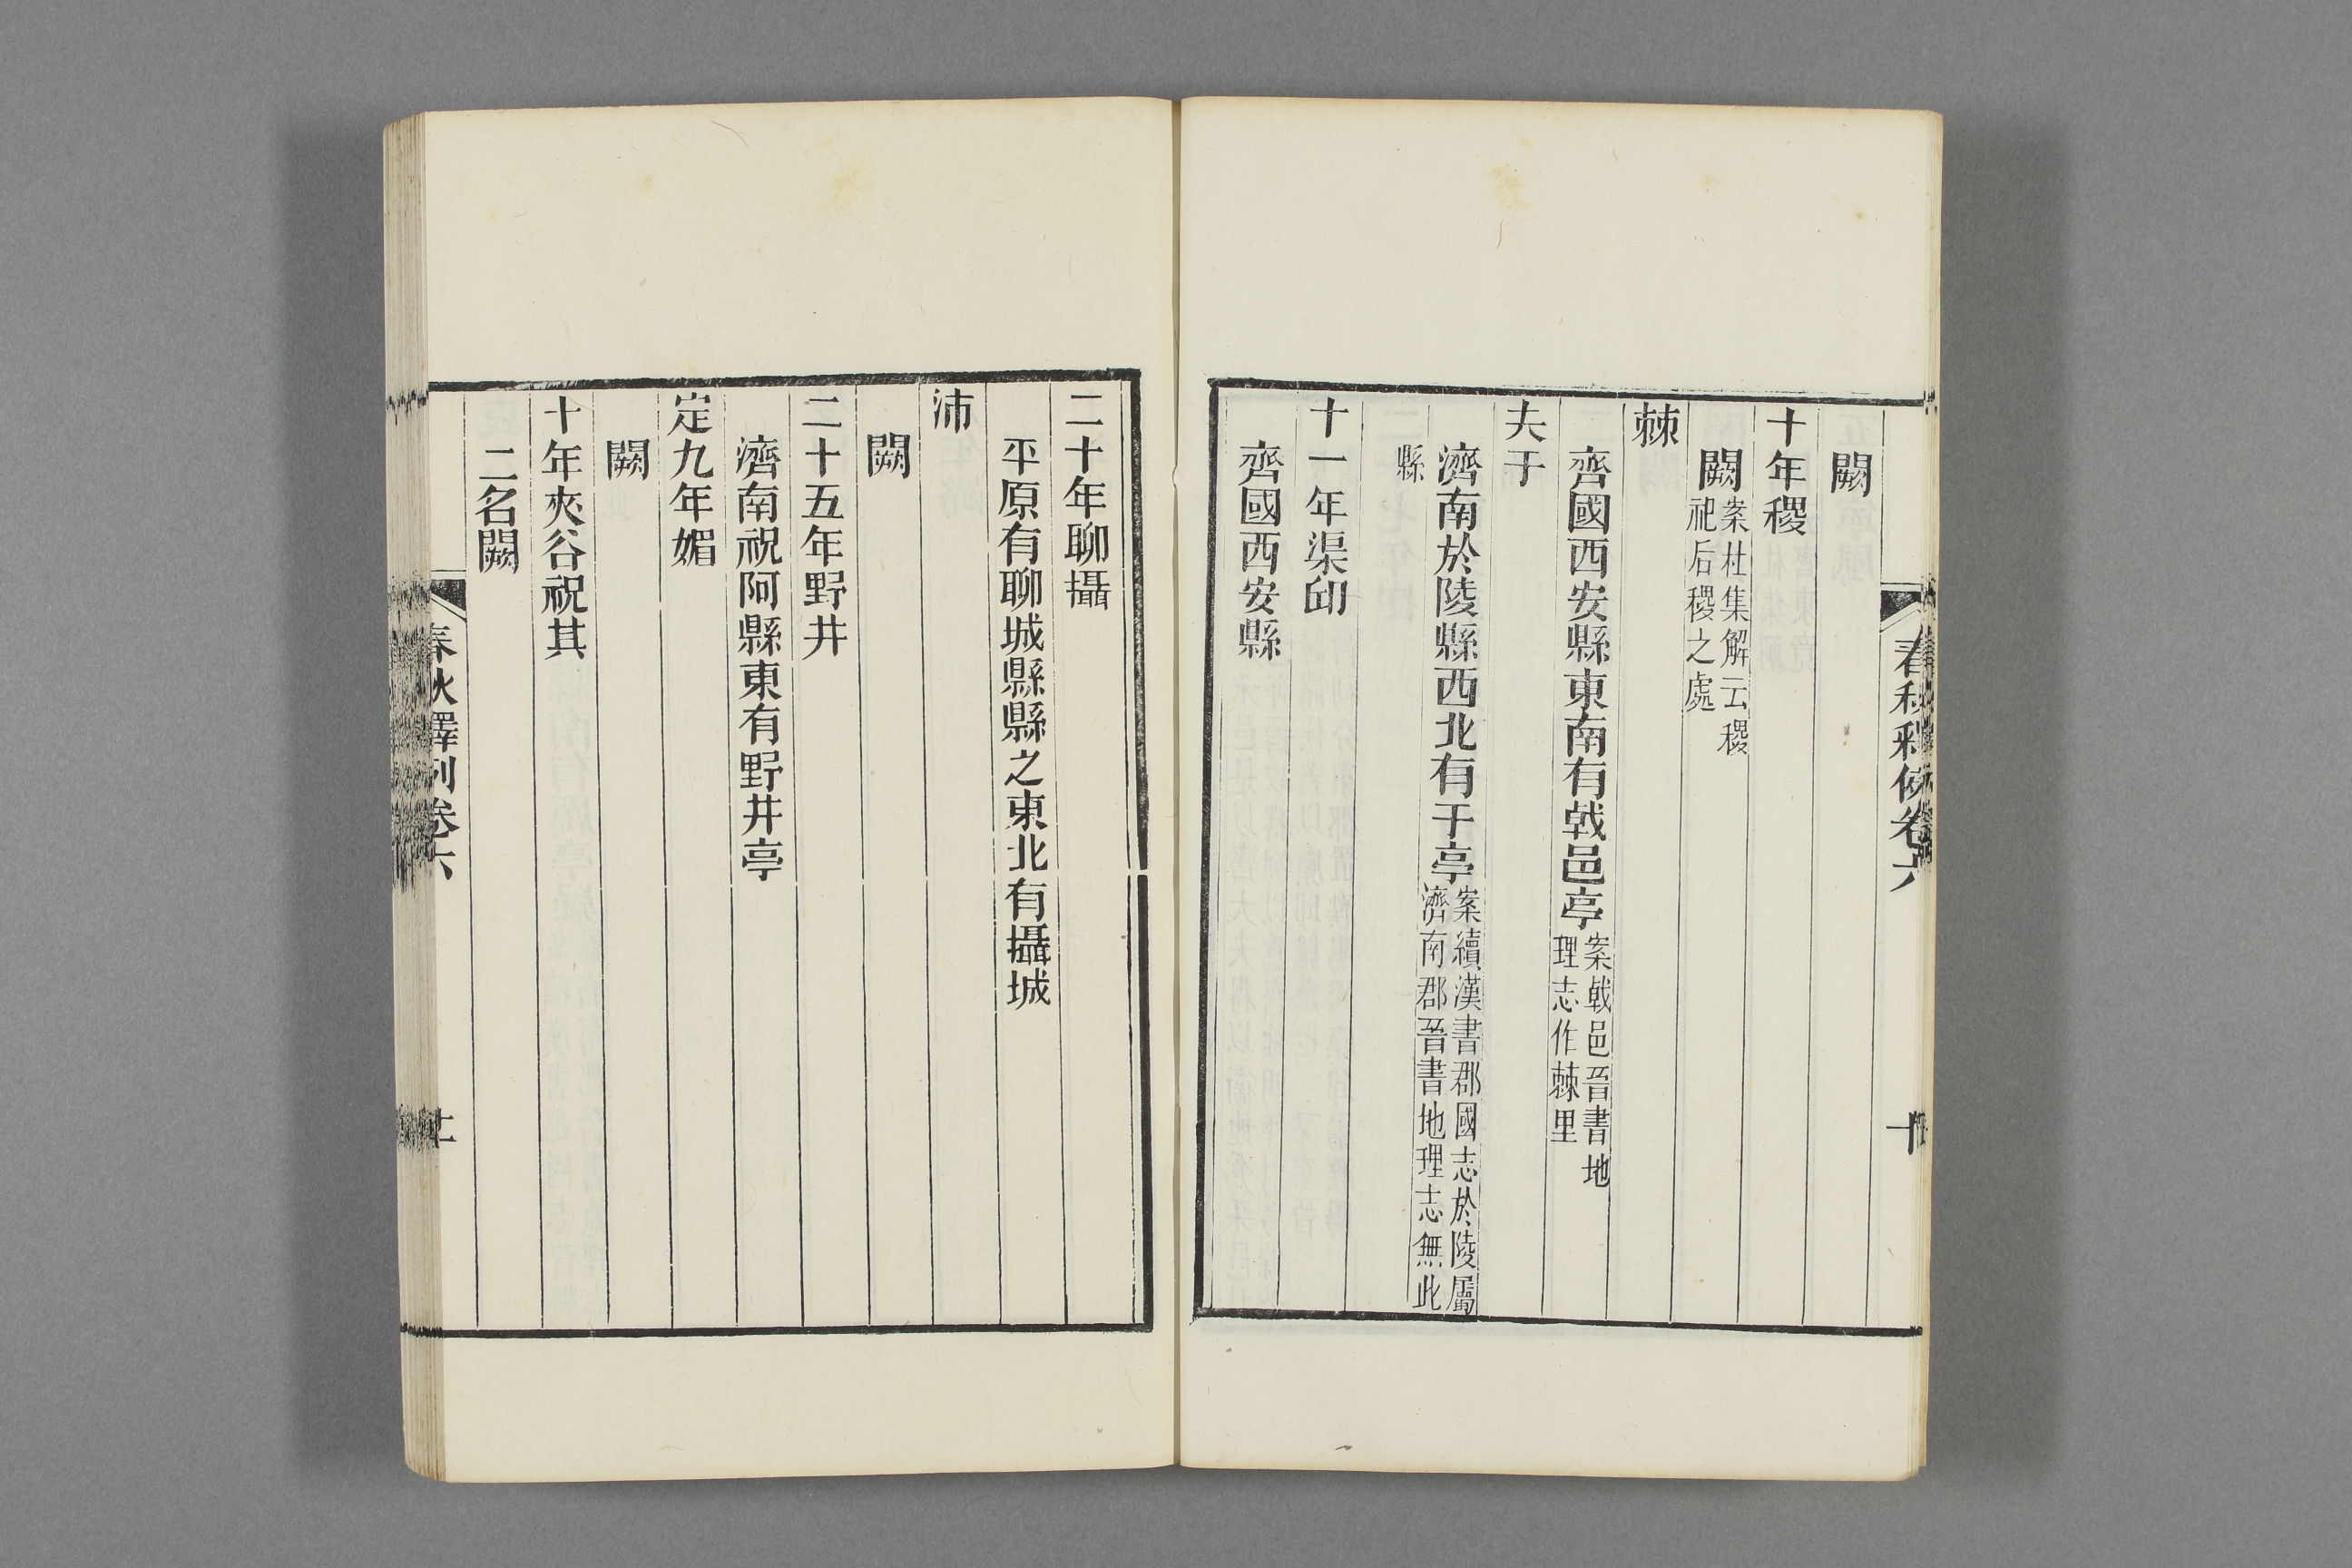 闕
十年稷
闕案杜集解云稷
祀后稷之處
棘
齊國西安縣東南有戟邑亭案戟邑晉書地
理志作棘里
夫于
濟南於陵縣西北有于亭案續漢書郡國志於陵屬
濟南郡晉書地理志無此
縣
十一年渠邱
齊國西安縣
春秋釋例卷六
十
二十年聊攝
平原有聊城縣縣之東北有攝城
沛
闕
二十五年野井
濟南祝阿縣東有野井亭
定九年媚
闕
十年夾谷祝其
二名闕
春秋釋例卷六